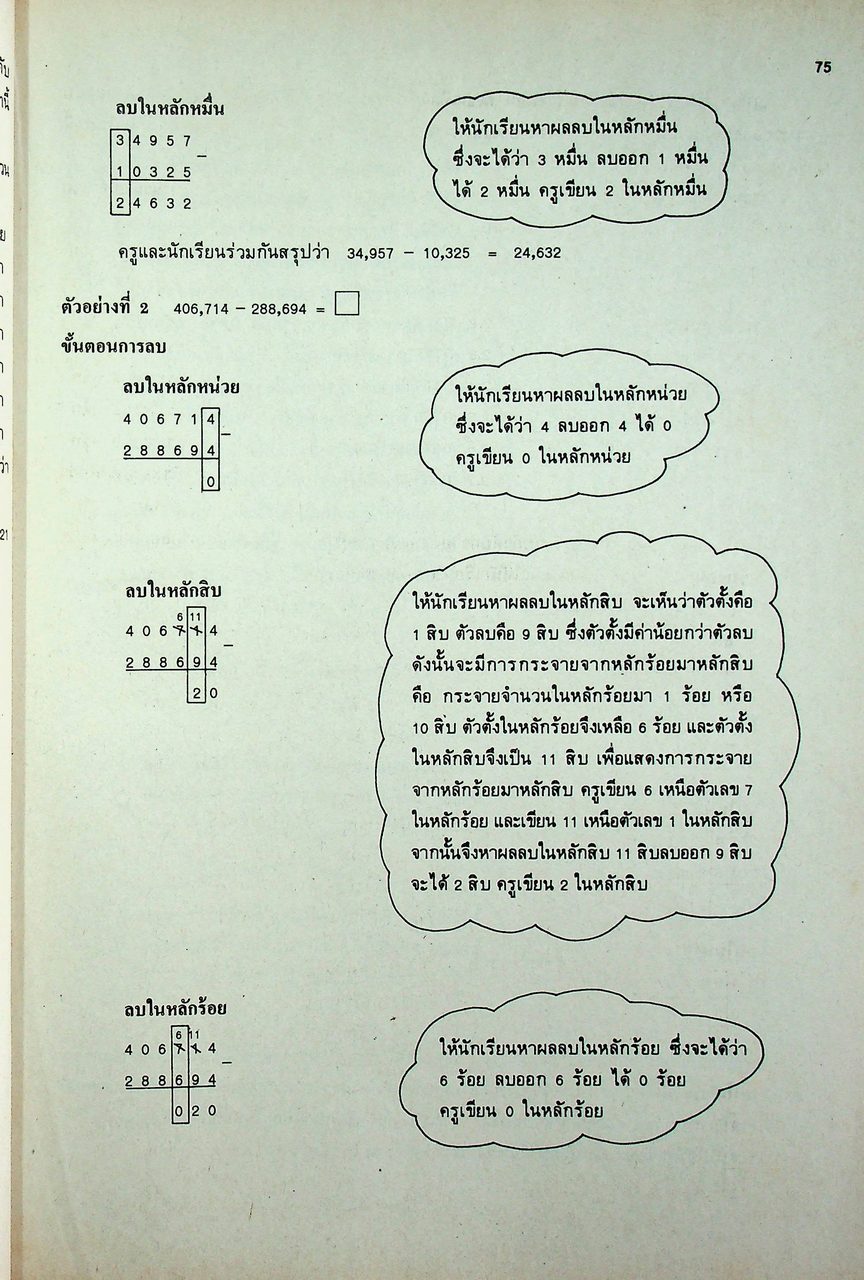 75
ลบในหลักหมื่น
3 4 9 5 7
–
1 0 3 2 5
2 4 6 3 2
ให้นักเรียนหาผลลบในหลักหมื่น
ซึ่งจะได้ว่า 3 หมื่น ลบออก 1 หมื่น
ได้ 2 หมื่น ครูเขียน 2 ในหลักหมื่น
ครูและนักเรียนร่วมกันสรุปว่า 34,957 – 10,325 = 24,632
ตัวอย่างที่ 2 406,714 – 288,694 = □
ขั้นตอนการลบ
ลบในหลักหน่วย
4 0 6 7 1 4
–
2 8 8 6 9 4
0
ให้นักเรียนหาผลลบในหลักหน่วย
ซึ่งจะได้ว่า 4 ลบออก 4 ได้ 0
ครูเขียน 0 ในหลักหน่วย
ลบในหลักสิบ
6 11
4 0 6 7 1 4
–
2 8 8 6 9 4
2 0
ให้นักเรียนหาผลลบในหลักสิบ จะเห็นว่าตัวตั้งคือ
1 สิบ ตัวลบคือ 9 สิบ ซึ่งตัวตั้งมีค่าน้อยกว่าตัวลบ
ดังนั้นจะมีการกระจายจากหลักร้อยมาหลักสิบ
คือ กระจายจำนวนในหลักร้อยมา 1 ร้อย หรือ
10 สิบ ตัวตั้งในหลักร้อยจึงเหลือ 6 ร้อย และตัวตั้ง
ในหลักสิบจึงเป็น 11 สิบ เพื่อแสดงการกระจาย
จากหลักร้อยมาหลักสิบ ครูเขียน 6 เหนือตัวเลข 7
ในหลักร้อย และเขียน 11 เหนือตัวเลข 1 ในหลักสิบ
จากนั้นจึงหาผลลบในหลักสิบ 11 สิบลบออก 9 สิบ
จะได้ 2 สิบ ครูเขียน 2 ในหลักสิบ
ลบในหลักร้อย
6 11
4 0 6 7 1 4
–
2 8 8 6 9 4
0 2 0
ให้นักเรียนหาผลลบในหลักร้อย ซึ่งจะได้ว่า
6 ร้อย ลบออก 6 ร้อย ได้ 0 ร้อย
ครูเขียน 0 ในหลักร้อย